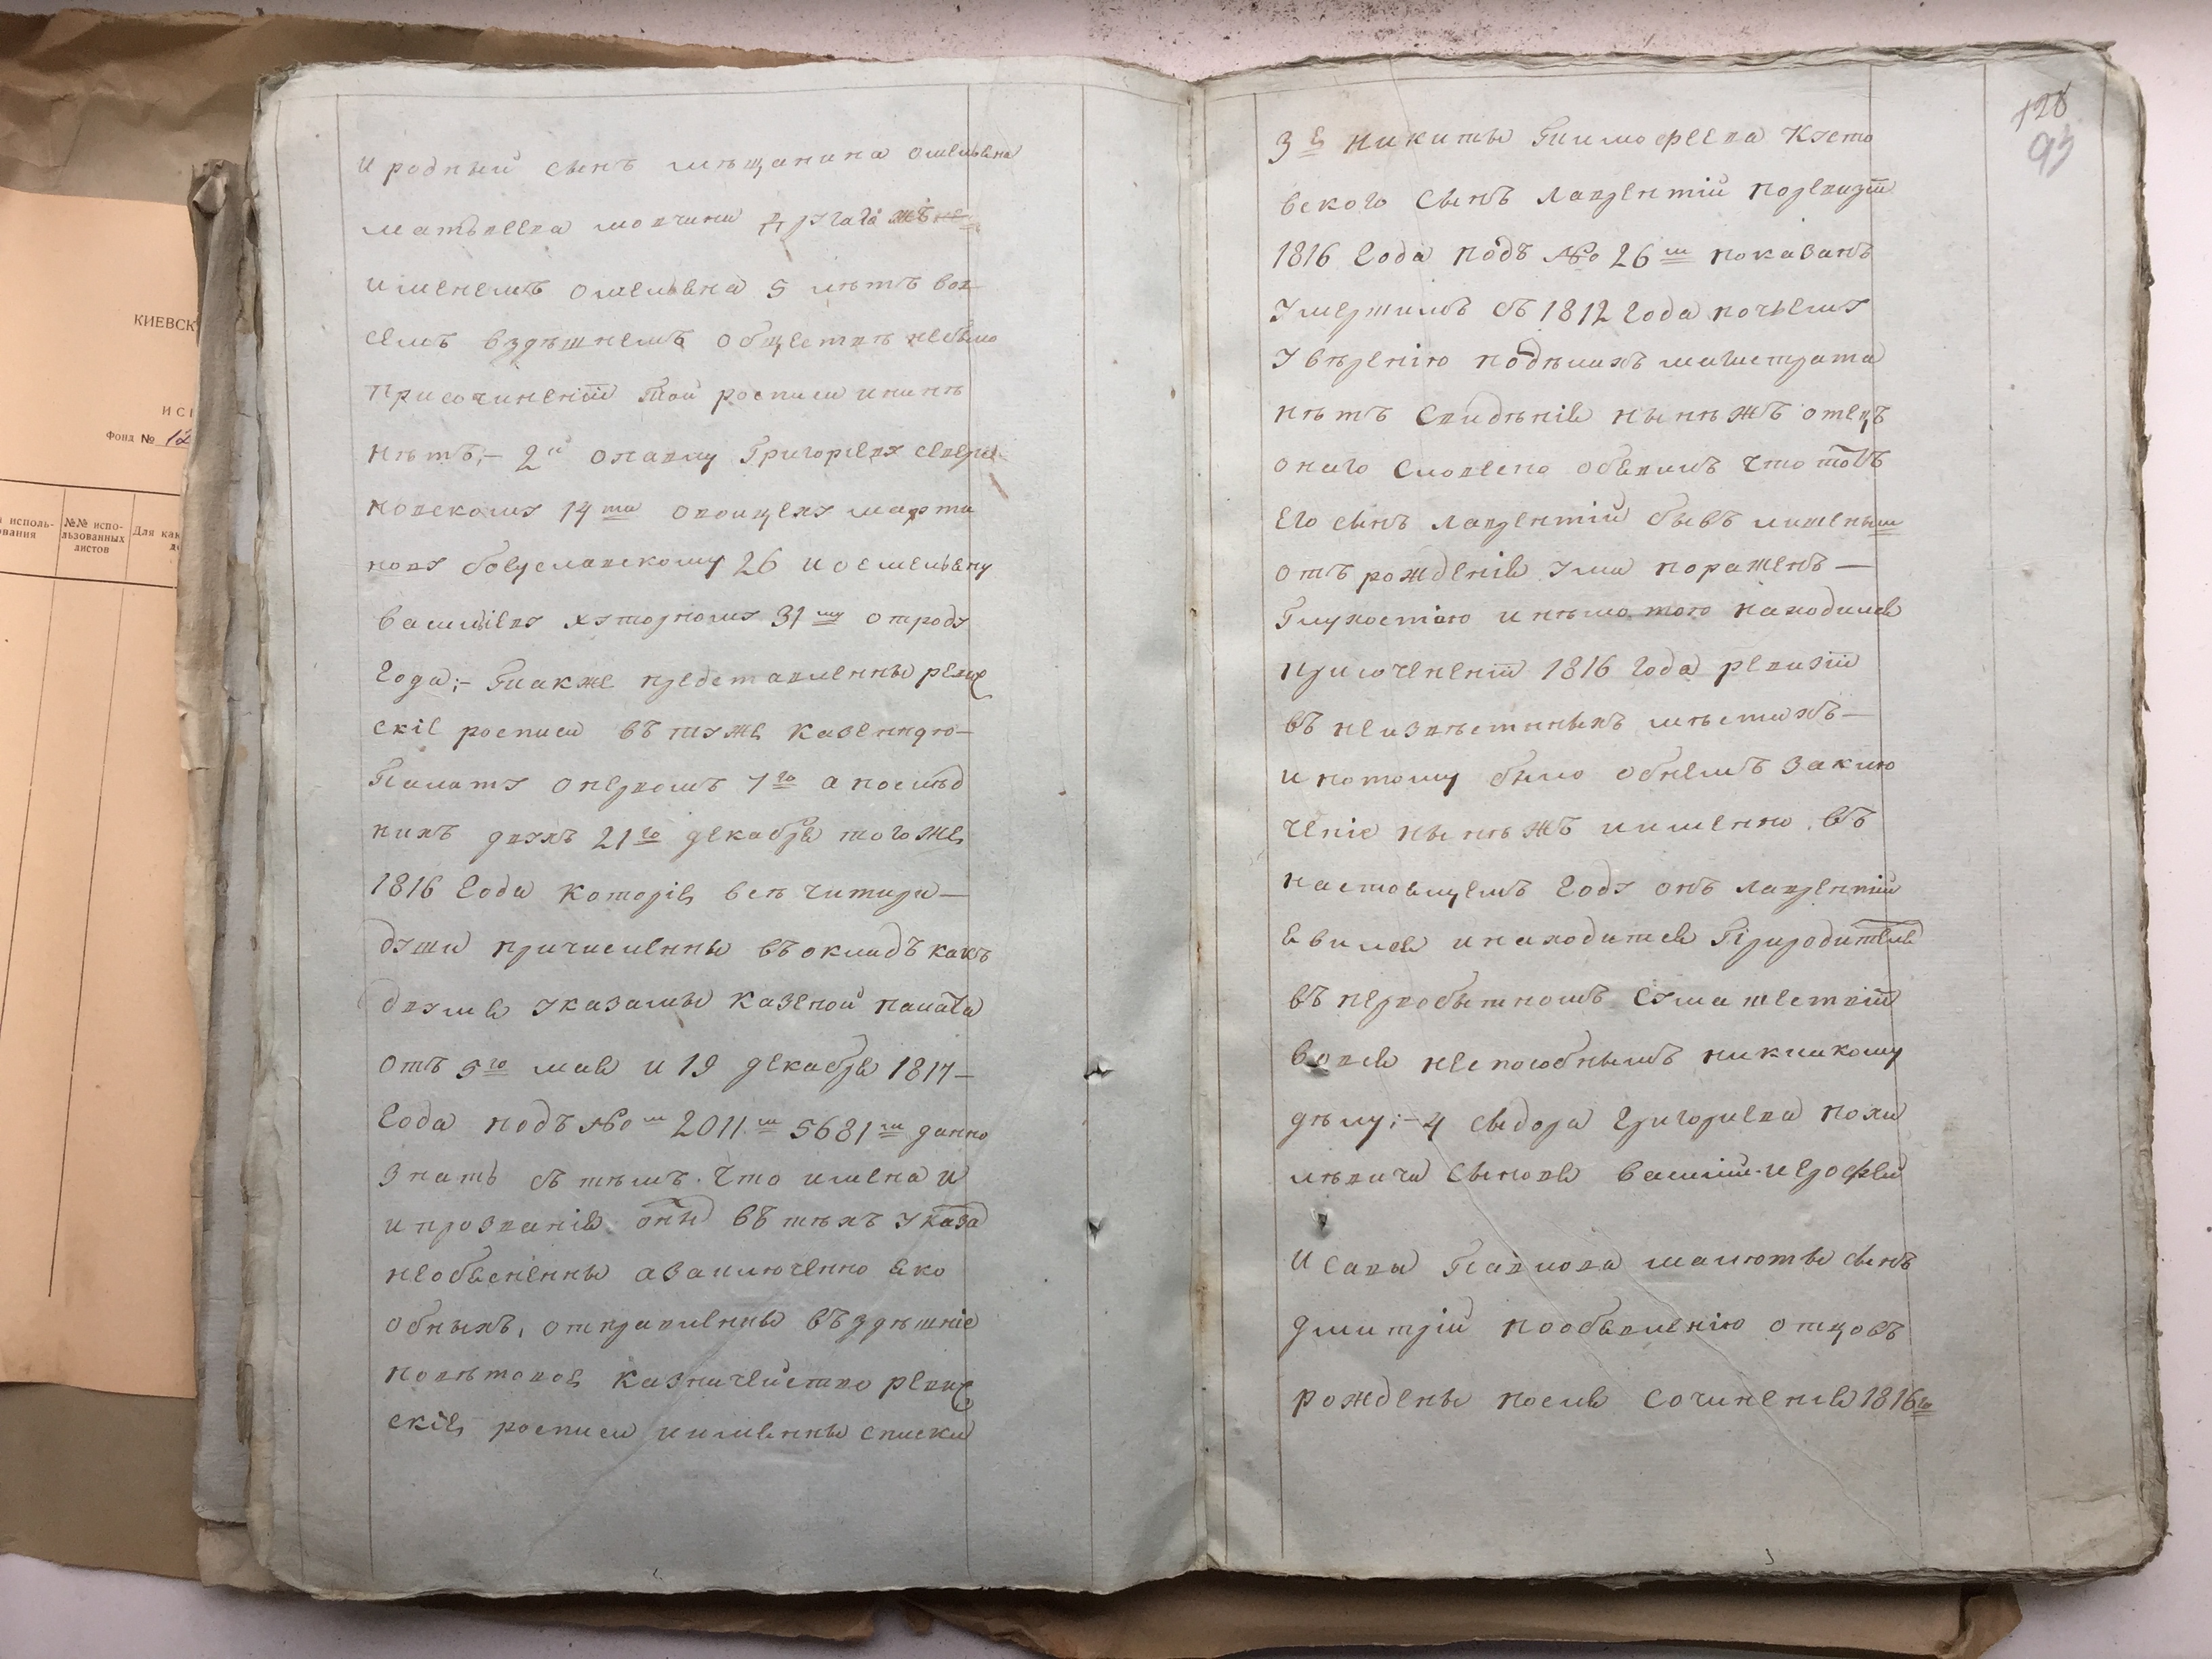 КИЕВСК
ИСП
Фонд № 12
исполь-
зования
№№ испо-
льзованных
листов
Для как
и родный сынъ мѣщанина омельяна
матвеева мовчини другагѡ жъ
именемъ омельяна 5 лѣтъ вов
семъ вздѣшнемъ обществѣ небыло
присочиненіи той росписи ининѣ
нѣтъ,- 2й опавлу Григорьеву севери
новскому 14ти овоицеху марти
нову богуславскому 26 и оемельяну
василіеву хуторному 31му отроду
года;- Также представленны ревиз
скіе росписи въ туже казенную-
Палату опервомъ 7го а послѣд
нихъ двухъ 21го декабря того же
1816 Года которіе всѣ читири-
души причисленны въокладъ какъ
двумя указамы казеной палати
отъ 5го мая и 19 декабря 1817-
Года подъ №м 2011м 5681м данно
знать съ тѣмъ. что имена и
и прозванія онѣ въ тѣхъ указа
необясненны азаключенно яко
обныхъ, отправленны въздѣшніе
повѣтовое казначейство ревиз
скіе росписи именны списки
128
93
3е Никиты Тимофеева Кусто
вского сынъ лаврентій поревизіи
1816 Года подъ №о 26м показанъ
умершимъ съ 1812 Года почьему
увѣренію подѣлахъ магистрата
нѣтъ свидѣнія нынѣжъ отецъ
онаго словесно обявилъ что тотъ
его сынъ лаврентій бывъ лишеным
отъ рожденія ума пораженъ-
Глухостію инѣмотою находился
присоченіи 1816 Года ревизіи
въ неизвѣстныхъ мѣстахъ-
и потому было обнемъ заклю
ченіе нынѣжъ именно въ
настоящемъ Году онъ лаврентій
явился инаходится Природителя
въ первобытномъ сумашествіи
вовся неспособнымъ никчикому
дѣлу;- 4 сыдора Григориева похи
лѣвича сыновя василій и ерофей
И савы Павлова малюты сынъ
дмитрій пообявленію отцовъ
рождены посля сочиненія 1816го